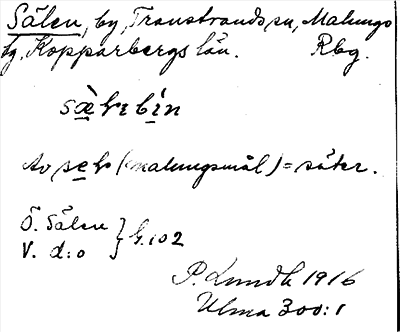 Sälen, by, Transtrands sn, Malungs
tg, Kopparbergs län. Rbg.
Av (malungsmål) = säter.
Ö. Sälen
V. d:o } h. 102
P. Lundh 1916
Ulma 300:1